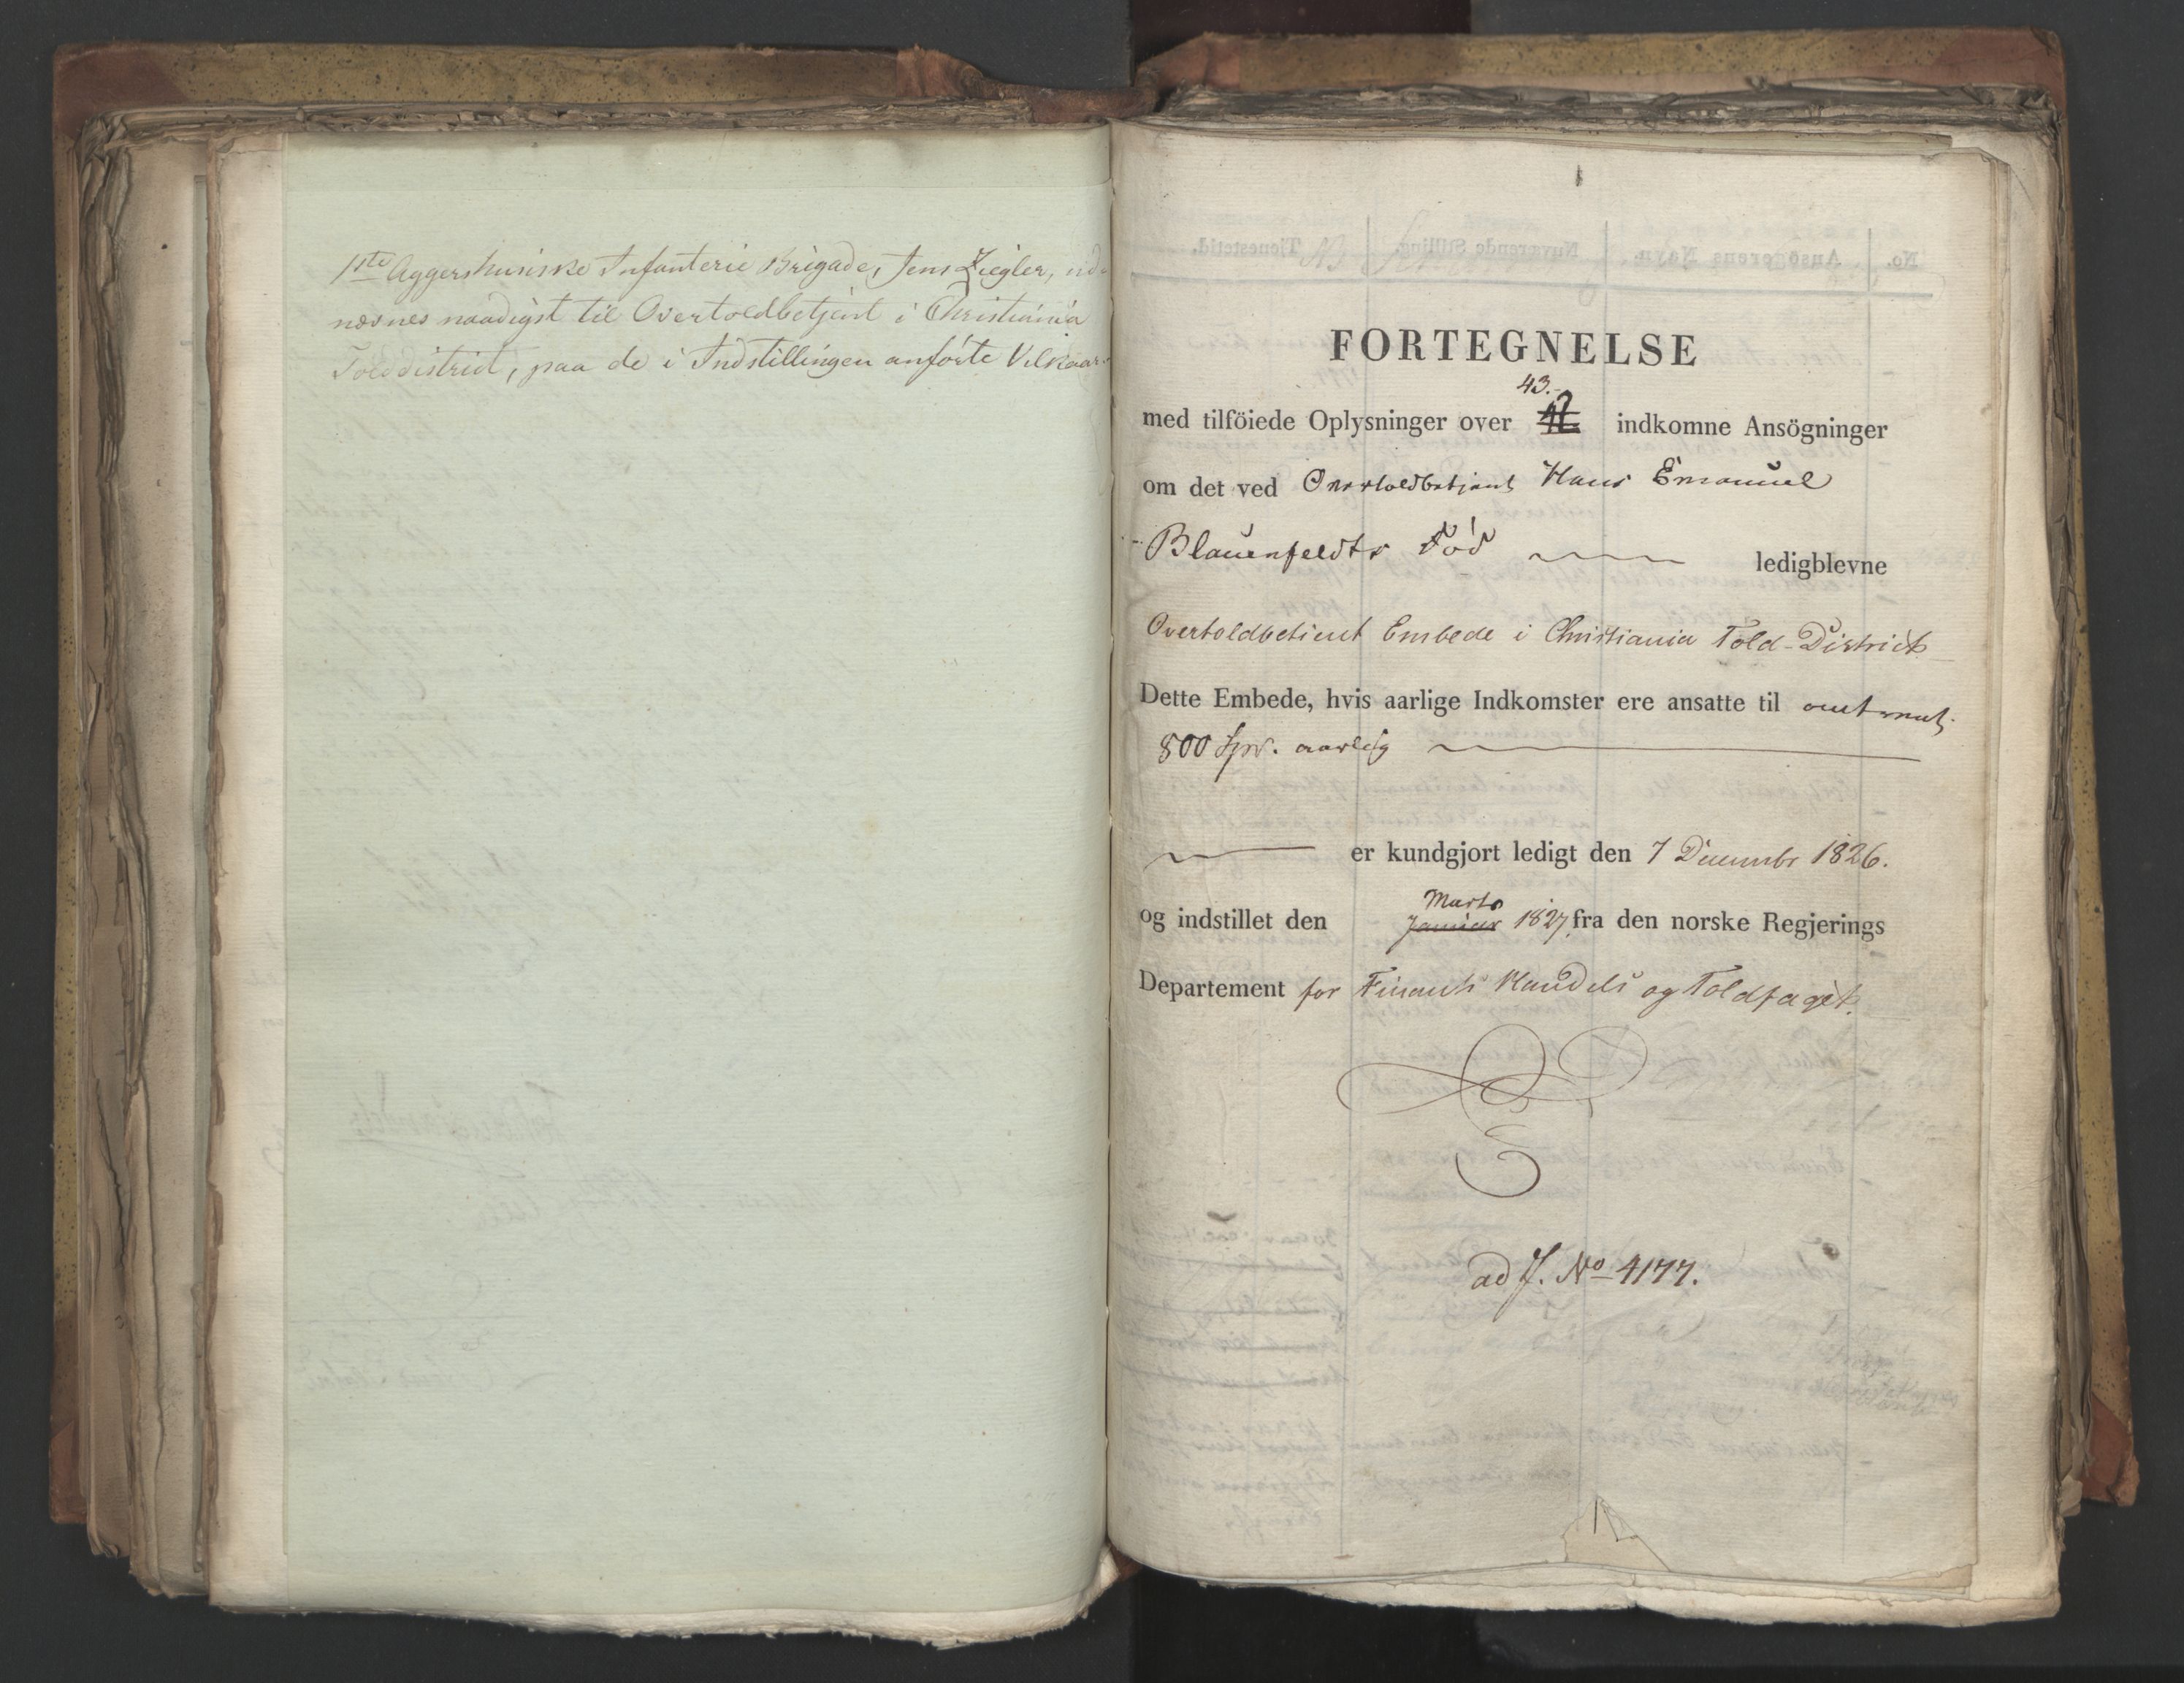 1ste Aggershusiske Infanterie Brigade, Jens Ziegler, ud-
nævnes naadigst til Overtoldbetjent i Christiania
Tolddistrict, paa de i Indstillingen anförte Vilkaar.
FORTEGNELSE
43.
med tilföiede Oplysninger over indkomne Ansögninger
om det ved Overtoldbetjent Hans Emanuel
Blauenfeldts Död ledigblevne
Overtoldbetient Embede i Christiania Told-District
Dette Embede, hvis aarlige Indkomster ere ansatte til omtrent
800 Spd. aarlig
er kundgjort ledigt den 7 December 1826.
Marts
og indstillet den Januar 1827 fra den norske Regjerings
Departement for Finants Handels og Toldfaget.
ad J. No 4177.